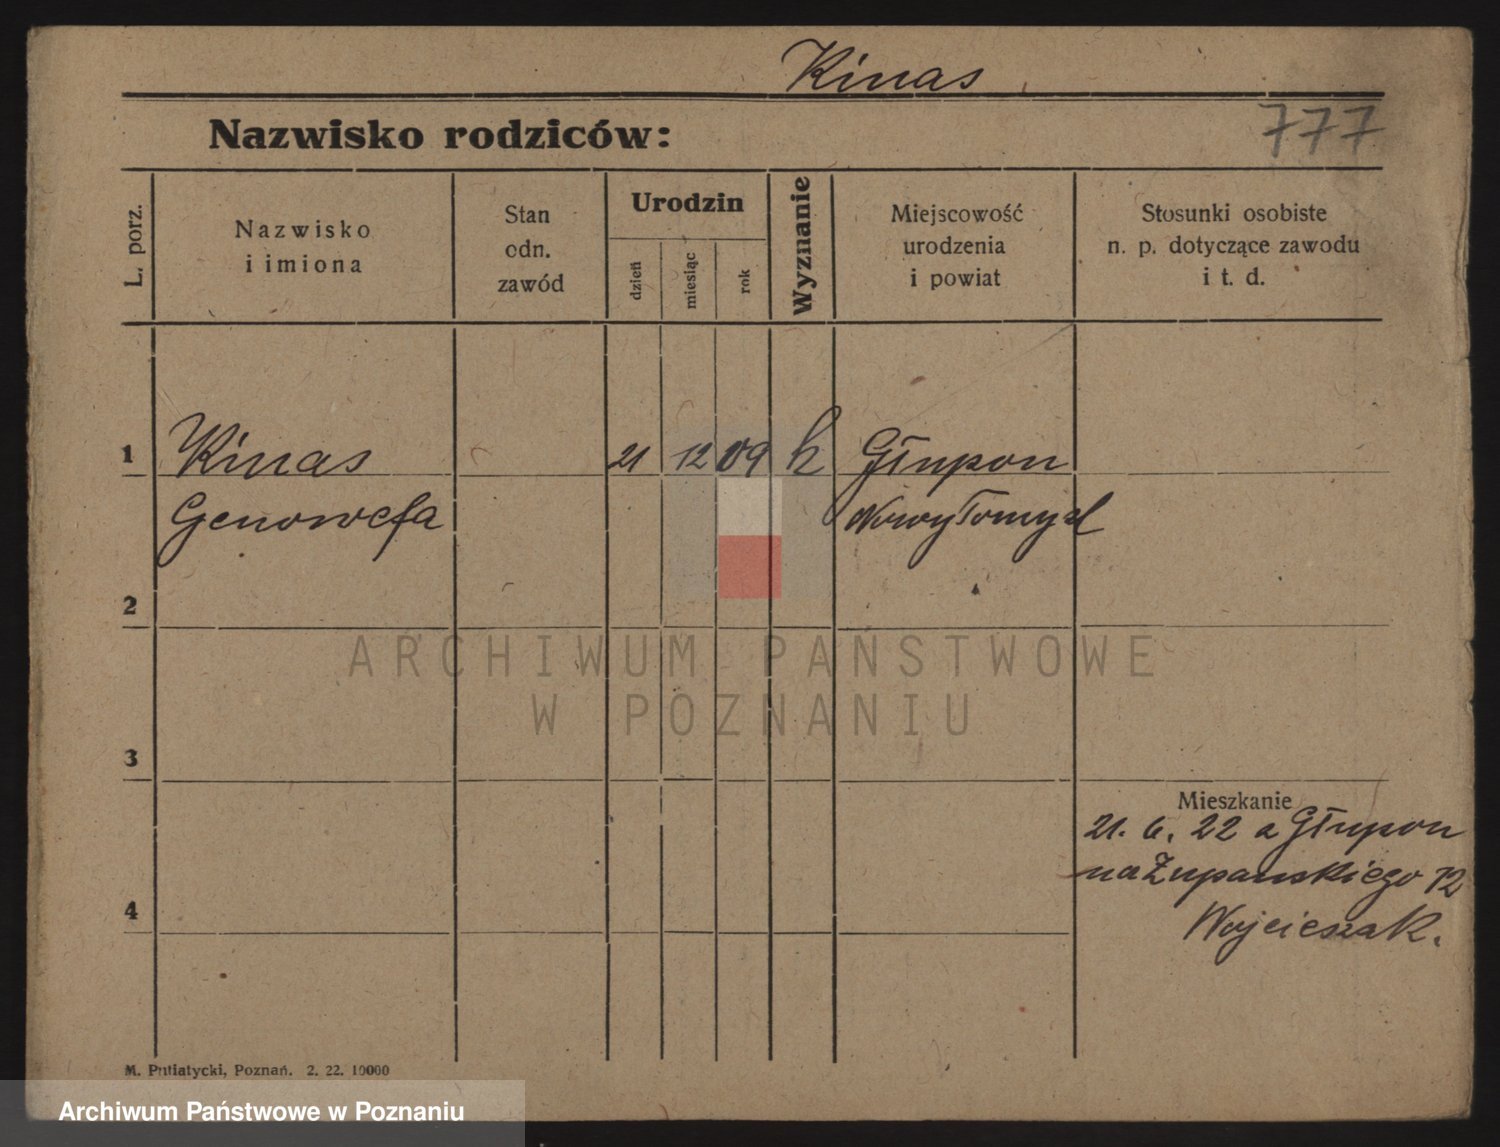 Kinas
Nazwisko rodziców:
777
L. porz.
Nazwisko
i imiona
Stan
odn.
zawód
Urodzin
dzień
miesiąc
rok
Wyznanie
Miejscowość
urodzenia
i powiat
Stosunki osobiste
n. p. dotyczące zawodu
i t. d.
1 Kinas 21 12 09 k Głupon
Genowefa Nowy Tomysl
2
ARCHIWUM PAŃSTWOWE
W POZNANIU
3
Mieszkanie
21. 6. 22 a Głupon
na Zupanskiego 12
4
Wojcieszak.
M. Putiatycki, Poznań. 2. 22. 10000
Archiwum Państwowe w Poznaniu